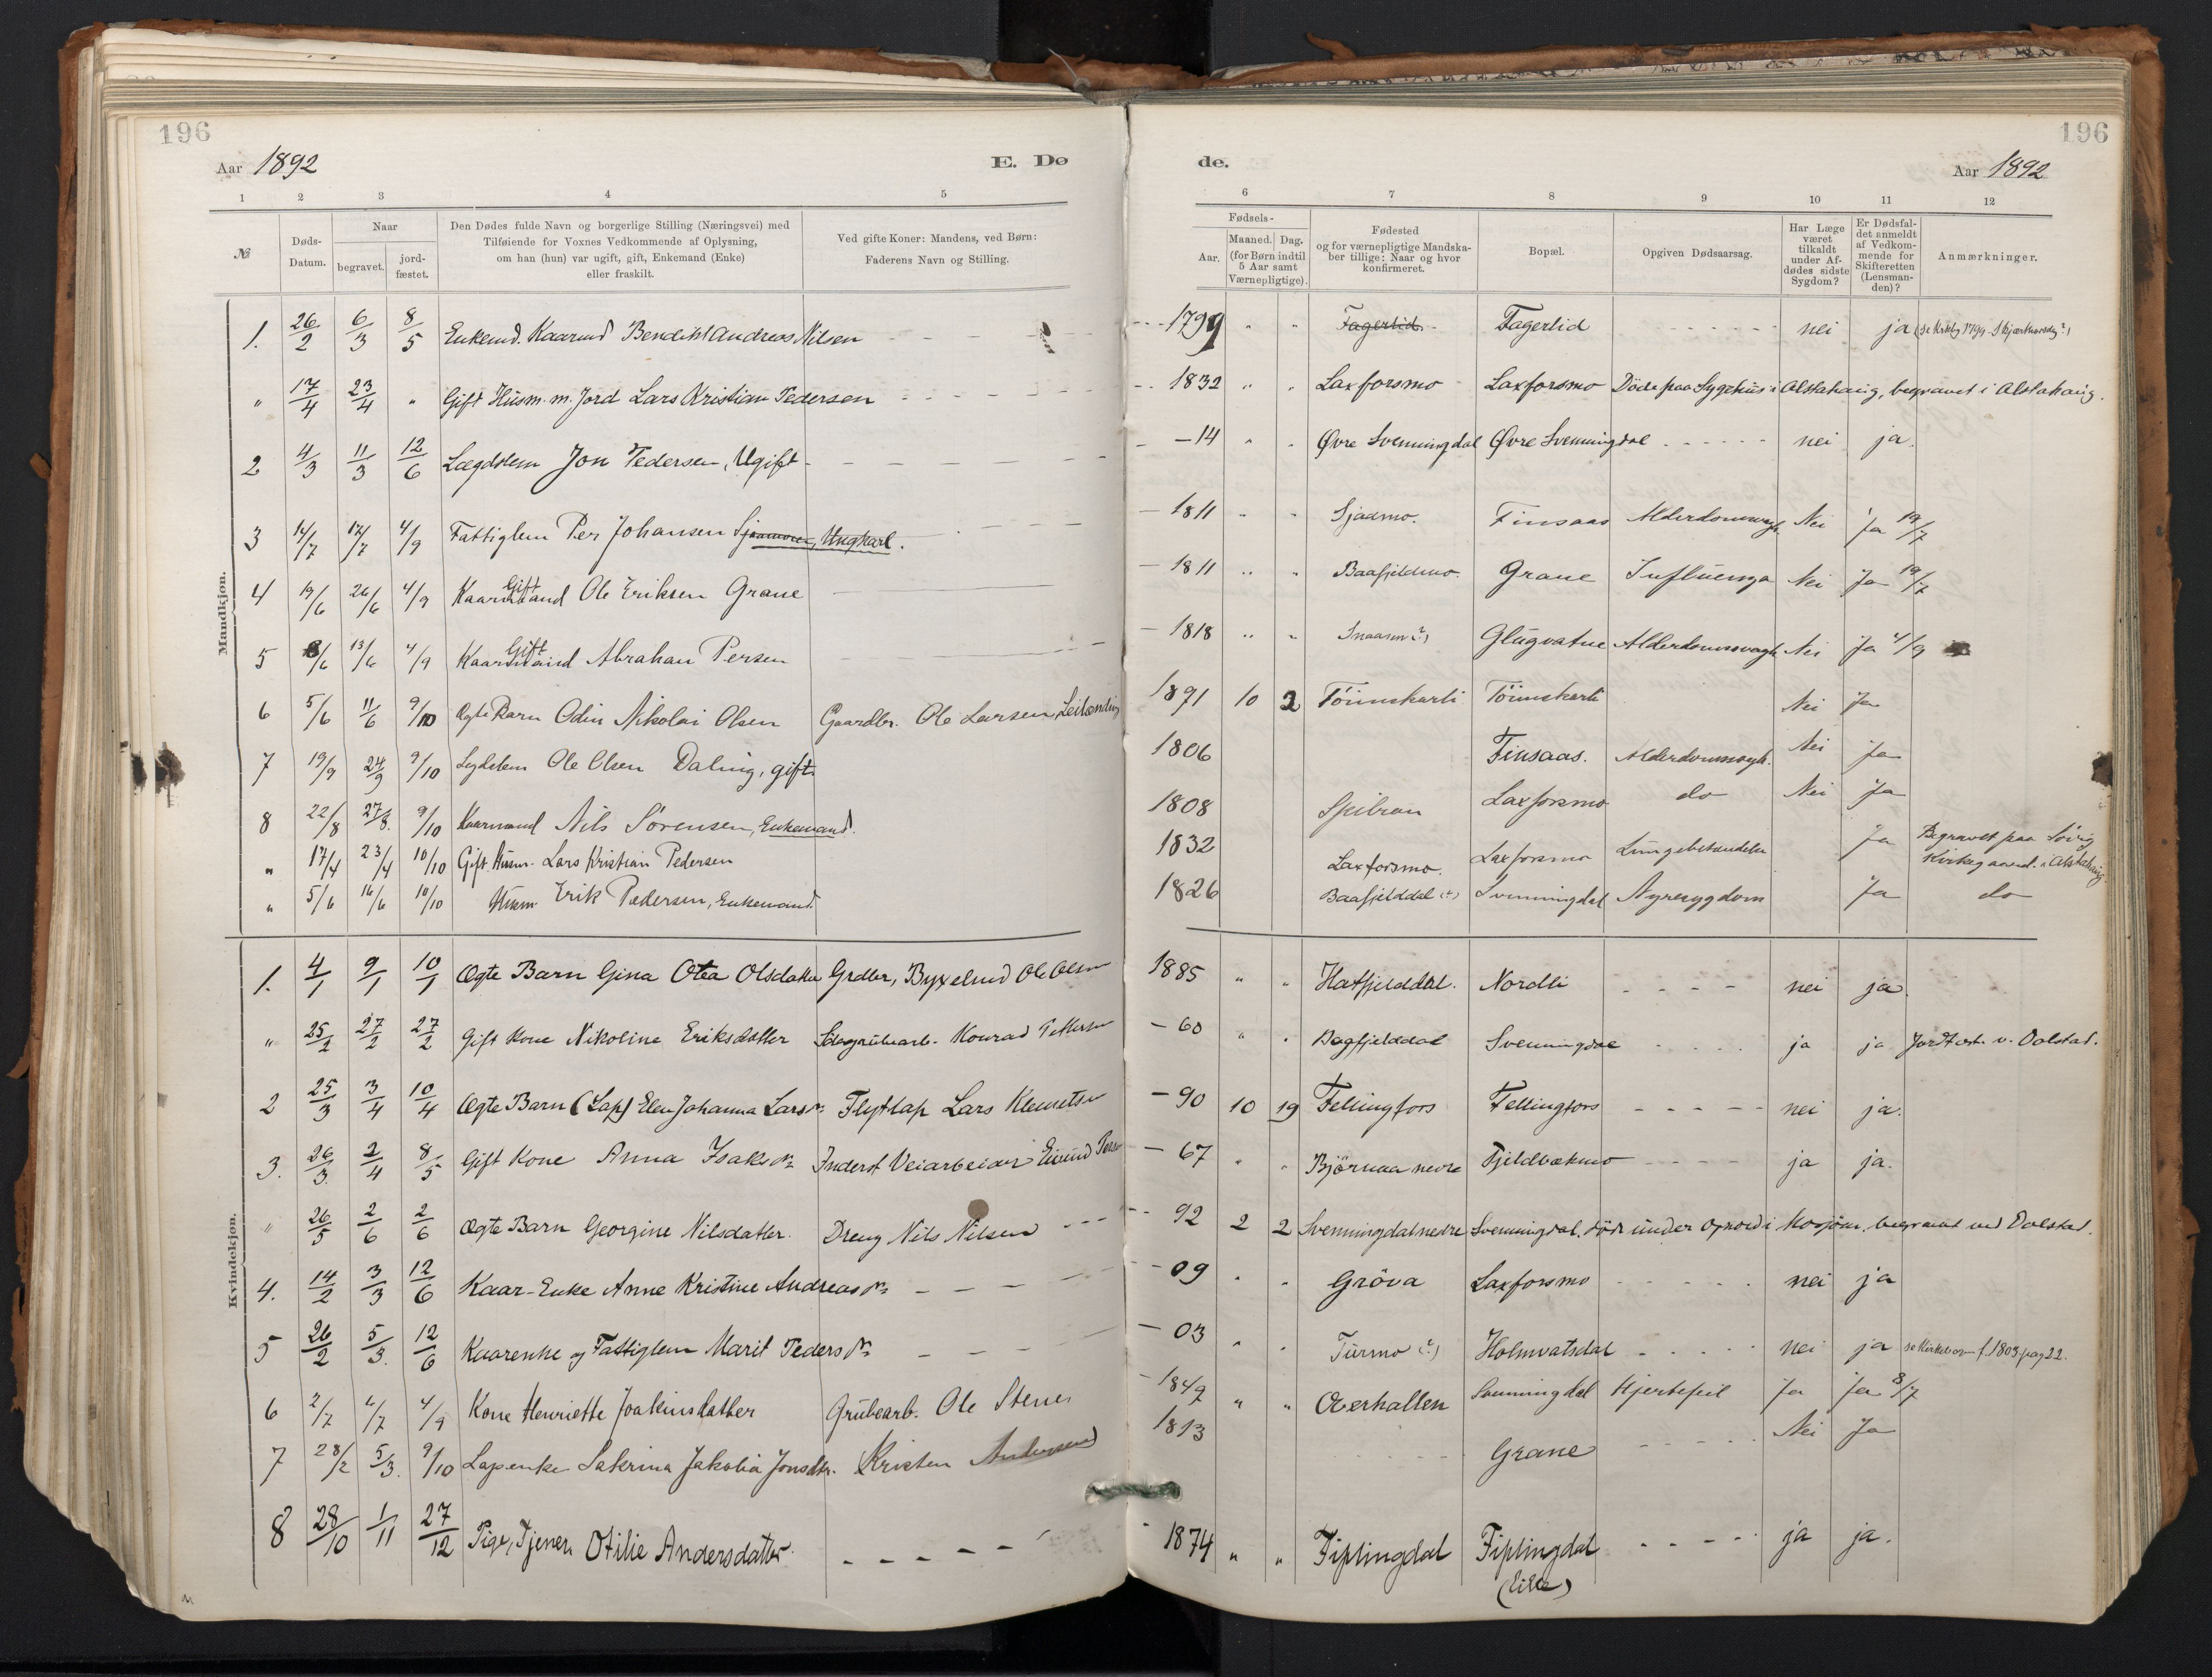 196
Aar 1892
E. Dø
1 2 3 4 5
№
Døds-
Datum.
Naar
begravet.
jord-
fæstet.
Den Dødes fulde Navn og borgerlige Stilling (Næringsvei) med
Tilføiende for Voxnes Vedkommende af Oplysning,
om han (hun) var ugift, gift, Enkemand (Enke)
eller fraskilt.
Ved gifte Koner: Mandens, ved Børn:
Faderens Navn og Stilling.
Mandkjøn.
1. 26/2 6/3 8/5 Enkemd. Kaarmd Bendikt Andreas Nilsen
" 17/4 23/4 " Gift Husm. m. Jord Lars Kristian Pedersen
2 4/3 11/3 12/6 Lægdslem Jon Pedersen, Ugift
3 14/7 17/7 4/9 Fattiglem Per Johansen Sjaamoen, Ungkarl.
4 19/6 26/6 4/9 Gift Kaarmand Ole Eriksen Grane
5 8/6 13/6 4/9 Gift Kaarmand Abraham Persen
6 5/6 11/6 9/10 Ægte Barn Odin Nikolai Olsen Gaardbr. Ole Larsen, Leilænding
7 19/9 24/9 9/10 Legdslem Ole Olsen Daling, gift
8 22/8 27/8. 9/10 Kaarmand Nils Sørensen, Enkemand.
" 17/4 23/4 10/10 Gift Husm. Lars Kristian Pedersen
" 5/6 16/6 10/10 Husm. Erik Pedersen, Enkemand.
Kvindekjøn.
1. 4/1 9/1 10/1 Ægte Barn Gina Otea Olsdatter Grdbr, Byxelmd Ole Olsen
" 25/2 27/2 27/2 Gift Kone Nikoline Eriksdatter Konrad Pettersen
2 25/3 3/4 10/4 Ægte Barn (Lap) Elen Johanna Larsdr. Flytlap Lars Klemetsen
3. 26/3. 2/4 8/5 Gift Kone Anna Isaksdr. Inderst Veiarbeider Eivind
" 26/5 2/6 2/6 Ægte Barn Georgine Nilsdatter. Dreng Nils Nilsen
4. 14/2 3/3 12/6 Kaar-Enke Anne Kristine Andreasdr.
5 26/2 5/3. 12/6 Kaarenke og Fattiglem Marit Pedersdr.
6 2/7 6/7 4/9 Kone Henriette Joakimsdatter Grubearb. Ole Stenes
7 28/2 5/3. 9/10 Lapenke Sakrina Jakobia Jonsdtr. Kristen Andersen
8 28/10 1/11 27/12 Pige, Tjener Otilie Andersdatter
196
de.
Aar 1892
6 7 8 9 10 11 12
Fødsels-
Aar.
Maaned.
Dag.
(for Børn indtil
5 Aar samt
Værnepligtige).
Fødested
og for værnepligtige Mandska-
ber tillige: Naar og hvor
konfirmeret.
Bopæl.
Opgiven Dødsaarsag.
Har Læge
været
tilkaldt
under Af-
dødes sidste
Sygdom?
Er Dødsfal-
det anmeldt
af Vedkom-
mende for
Skifteretten
(Lensman-
den)?
Anmærkninger.
1799 " " Fagerlid Fagerlid nei ja
1832 " " Laxforsmo Laxforsmo Døde paa Sygehus i Alstahaug, begravet i Alstahaug.
-14 " " Øvre Svenningdal Øvre Svenningdal nei ja.
1811 " " Sjaamo. Finsaas Alderdomssvagh. Nei Ja 19/7
1811 " " Baafjeldmo. Grane Influenza Nei Ja 19/7
1818 " " Glugvatne Alderdomssvagh Nei Ja 4/9
1891 10 2 Tömmskarli Tömmskarli Nei Ja
1806 Finsaas. Alderdomsvgh. Nei Ja
1808 Laxforsmo do Nei Ja
1832 Laxforsmo. Laxforsmo Lungebetændelse Ja Begravet paa Søvig
Kirkegaard i Alstahaug.
1826 Baafjelddal (?) Svenningdal Nyresygdom Ja do
1885 " " Hatfjelddal. Nordli nei ja.
-60 " " Bagfjelddal Svenningdal ja ja Jordfæst. v. Dolstad.
-90 10 19 Fellingfors Fellingfors nei ja.
-67 " " Björnaa nedre Fjeldbækmo ja ja.
92 2 2 Svenningdal nedre Svenningdal. död under Ophold i Mosjöen. begravet ved Dolstad.
-09 " " Gröva Laxforsmo nei ja
-03 " " Turmo (?) Holmvatsdal nei ja se Kirkebogen f. 1803 pag 22.
1849 " " Overhallen Svenningdal Hjertefeil Ja Ja 8/7
1813 Grane Nei Ja
1874 " " Fiplingdal Fiplingdal ja ja.